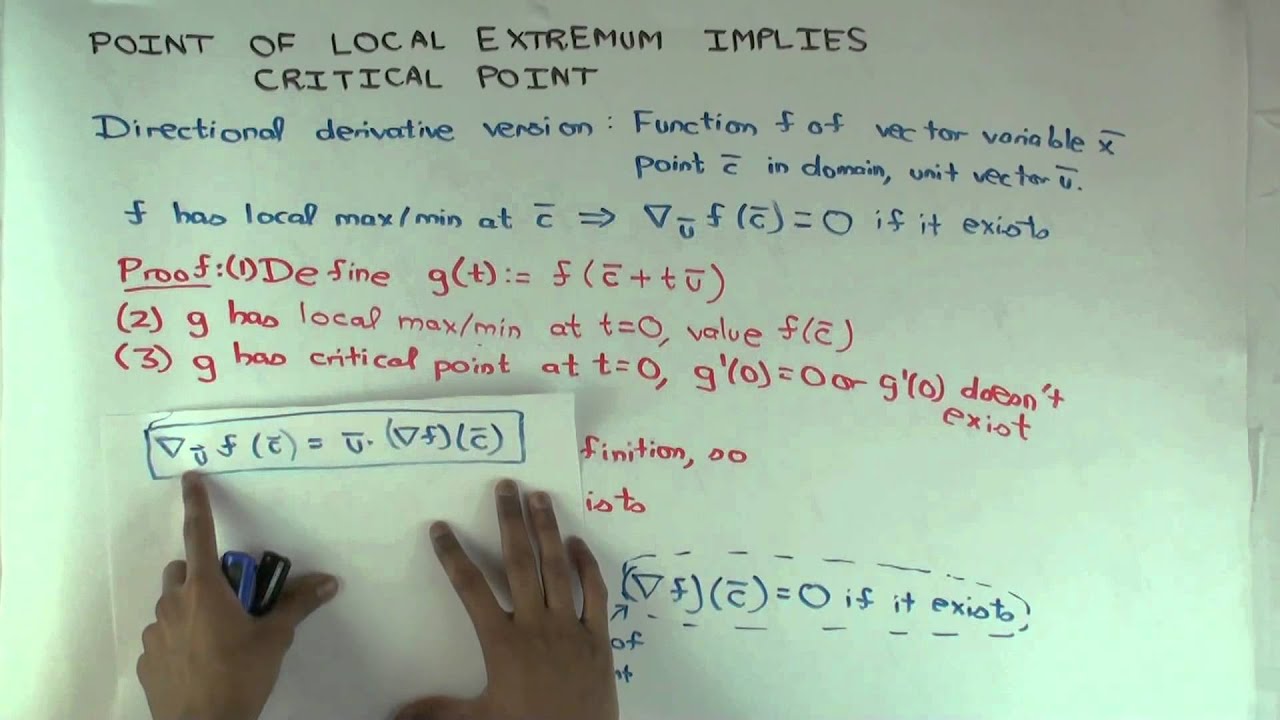 POINT OF LOCAL EXTREMUM IMPLIES
CRITICAL POINT
Directional derivative version: Function f of vector variable x̄
point c̄ in domain, unit vector ū.
f has local max/min at c̄ ⇒ ∇_ū f(c̄) = 0 if it exists
Proof: (1) Define g(t) := f(c̄ + tū)
(2) g has local max/min at t=0, value f(c̄)
(3) g has critical point at t=0, g'(0)=0 or g'(0) doesn't
exist
∇_ū f(c̄) = ū·(∇f)(c̄)
finition, so
ists
(∇f)(c̄) = 0 if it exists
of